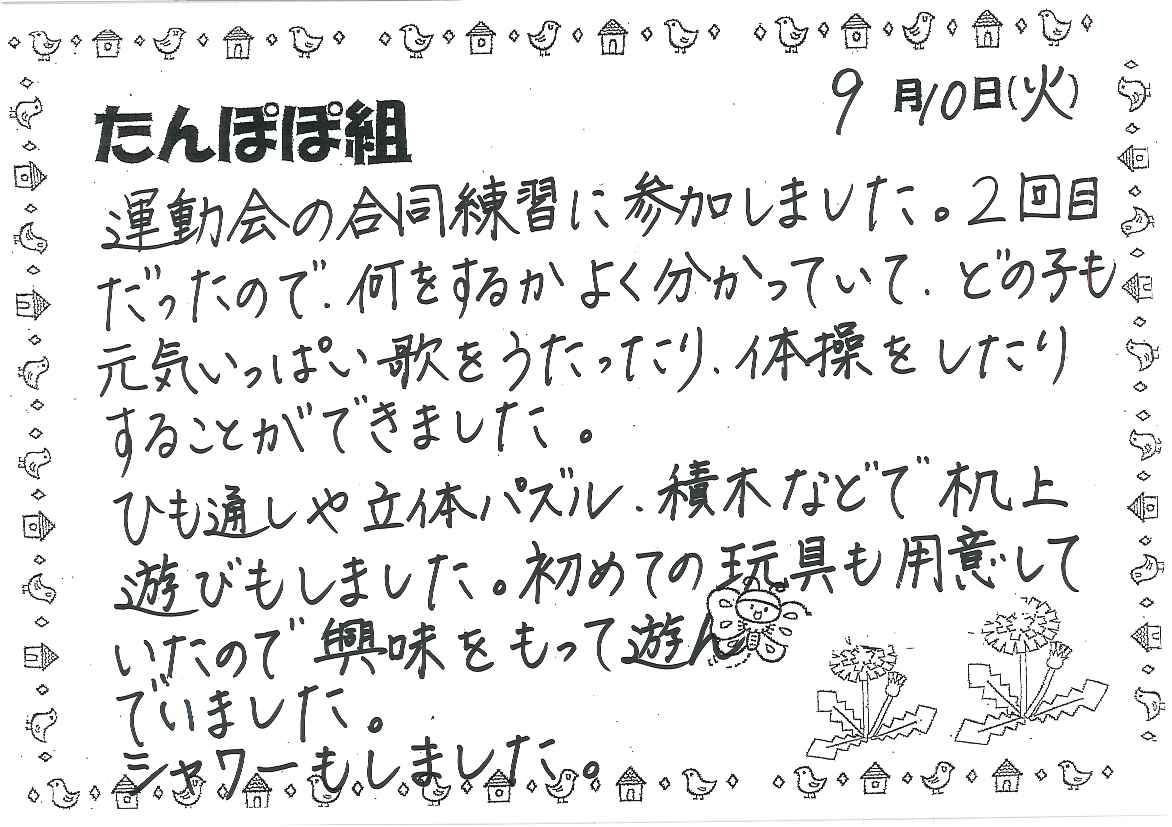 9月10日(火)
たんぽぽ組
運動会の合同練習に参加しました。2回目
だったので、何をするかよく分かっていて、どの子も
元気いっぱい歌をうたったり、体操をしたり
することができました。
ひも通しや立体パズル、積木などで机上
遊びもしました。初めての玩具も用意して
いたので興味をもって遊ん
でいました。
シャワーもしました。